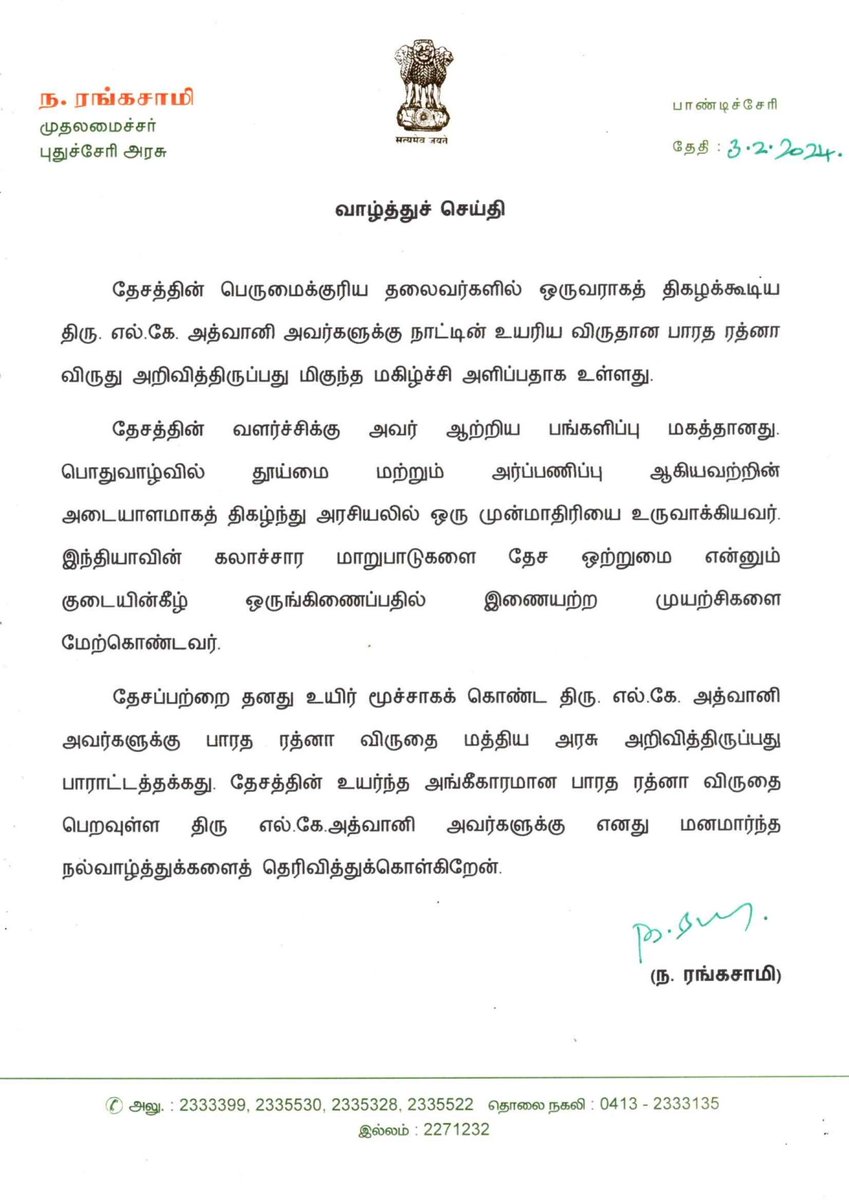 ந. ரங்கசாமி
முதலமைச்சர்
புதுச்சேரி அரசு
सत्यमेव जयते
பாண்டிச்சேரி
தேதி : 3.2.2024.
வாழ்த்துச் செய்தி
தேசத்தின் பெருமைக்குரிய தலைவர்களில் ஒருவராகத் திகழக்கூடிய
திரு. எல்.கே. அத்வானி அவர்களுக்கு நாட்டின் உயரிய விருதான பாரத ரத்னா
விருது அறிவித்திருப்பது மிகுந்த மகிழ்ச்சி அளிப்பதாக உள்ளது.
தேசத்தின் வளர்ச்சிக்கு அவர் ஆற்றிய பங்களிப்பு மகத்தானது.
பொதுவாழ்வில் தூய்மை மற்றும் அர்ப்பணிப்பு ஆகியவற்றின்
அடையாளமாகத் திகழ்ந்து அரசியலில் ஒரு முன்மாதிரியை உருவாக்கியவர்.
இந்தியாவின் கலாச்சார மாறுபாடுகளை தேச ஒற்றுமை என்னும்
குடையின்கீழ் ஒருங்கிணைப்பதில் இணையற்ற முயற்சிகளை
மேற்கொண்டவர்.
தேசப்பற்றை தனது உயிர் மூச்சாகக் கொண்ட திரு. எல்.கே. அத்வானி
அவர்களுக்கு பாரத ரத்னா விருதை மத்திய அரசு அறிவித்திருப்பது
பாராட்டத்தக்கது. தேசத்தின் உயர்ந்த அங்கீகாரமான பாரத ரத்னா விருதை
பெறவுள்ள திரு எல்.கே.அத்வானி அவர்களுக்கு எனது மனமார்ந்த
நல்வாழ்த்துக்களைத் தெரிவித்துக்கொள்கிறேன்.
(ந. ரங்கசாமி)
✆ அலு. : 2333399, 2335530, 2335328, 2335522 தொலை நகலி : 0413 - 2333135
இல்லம் : 2271232